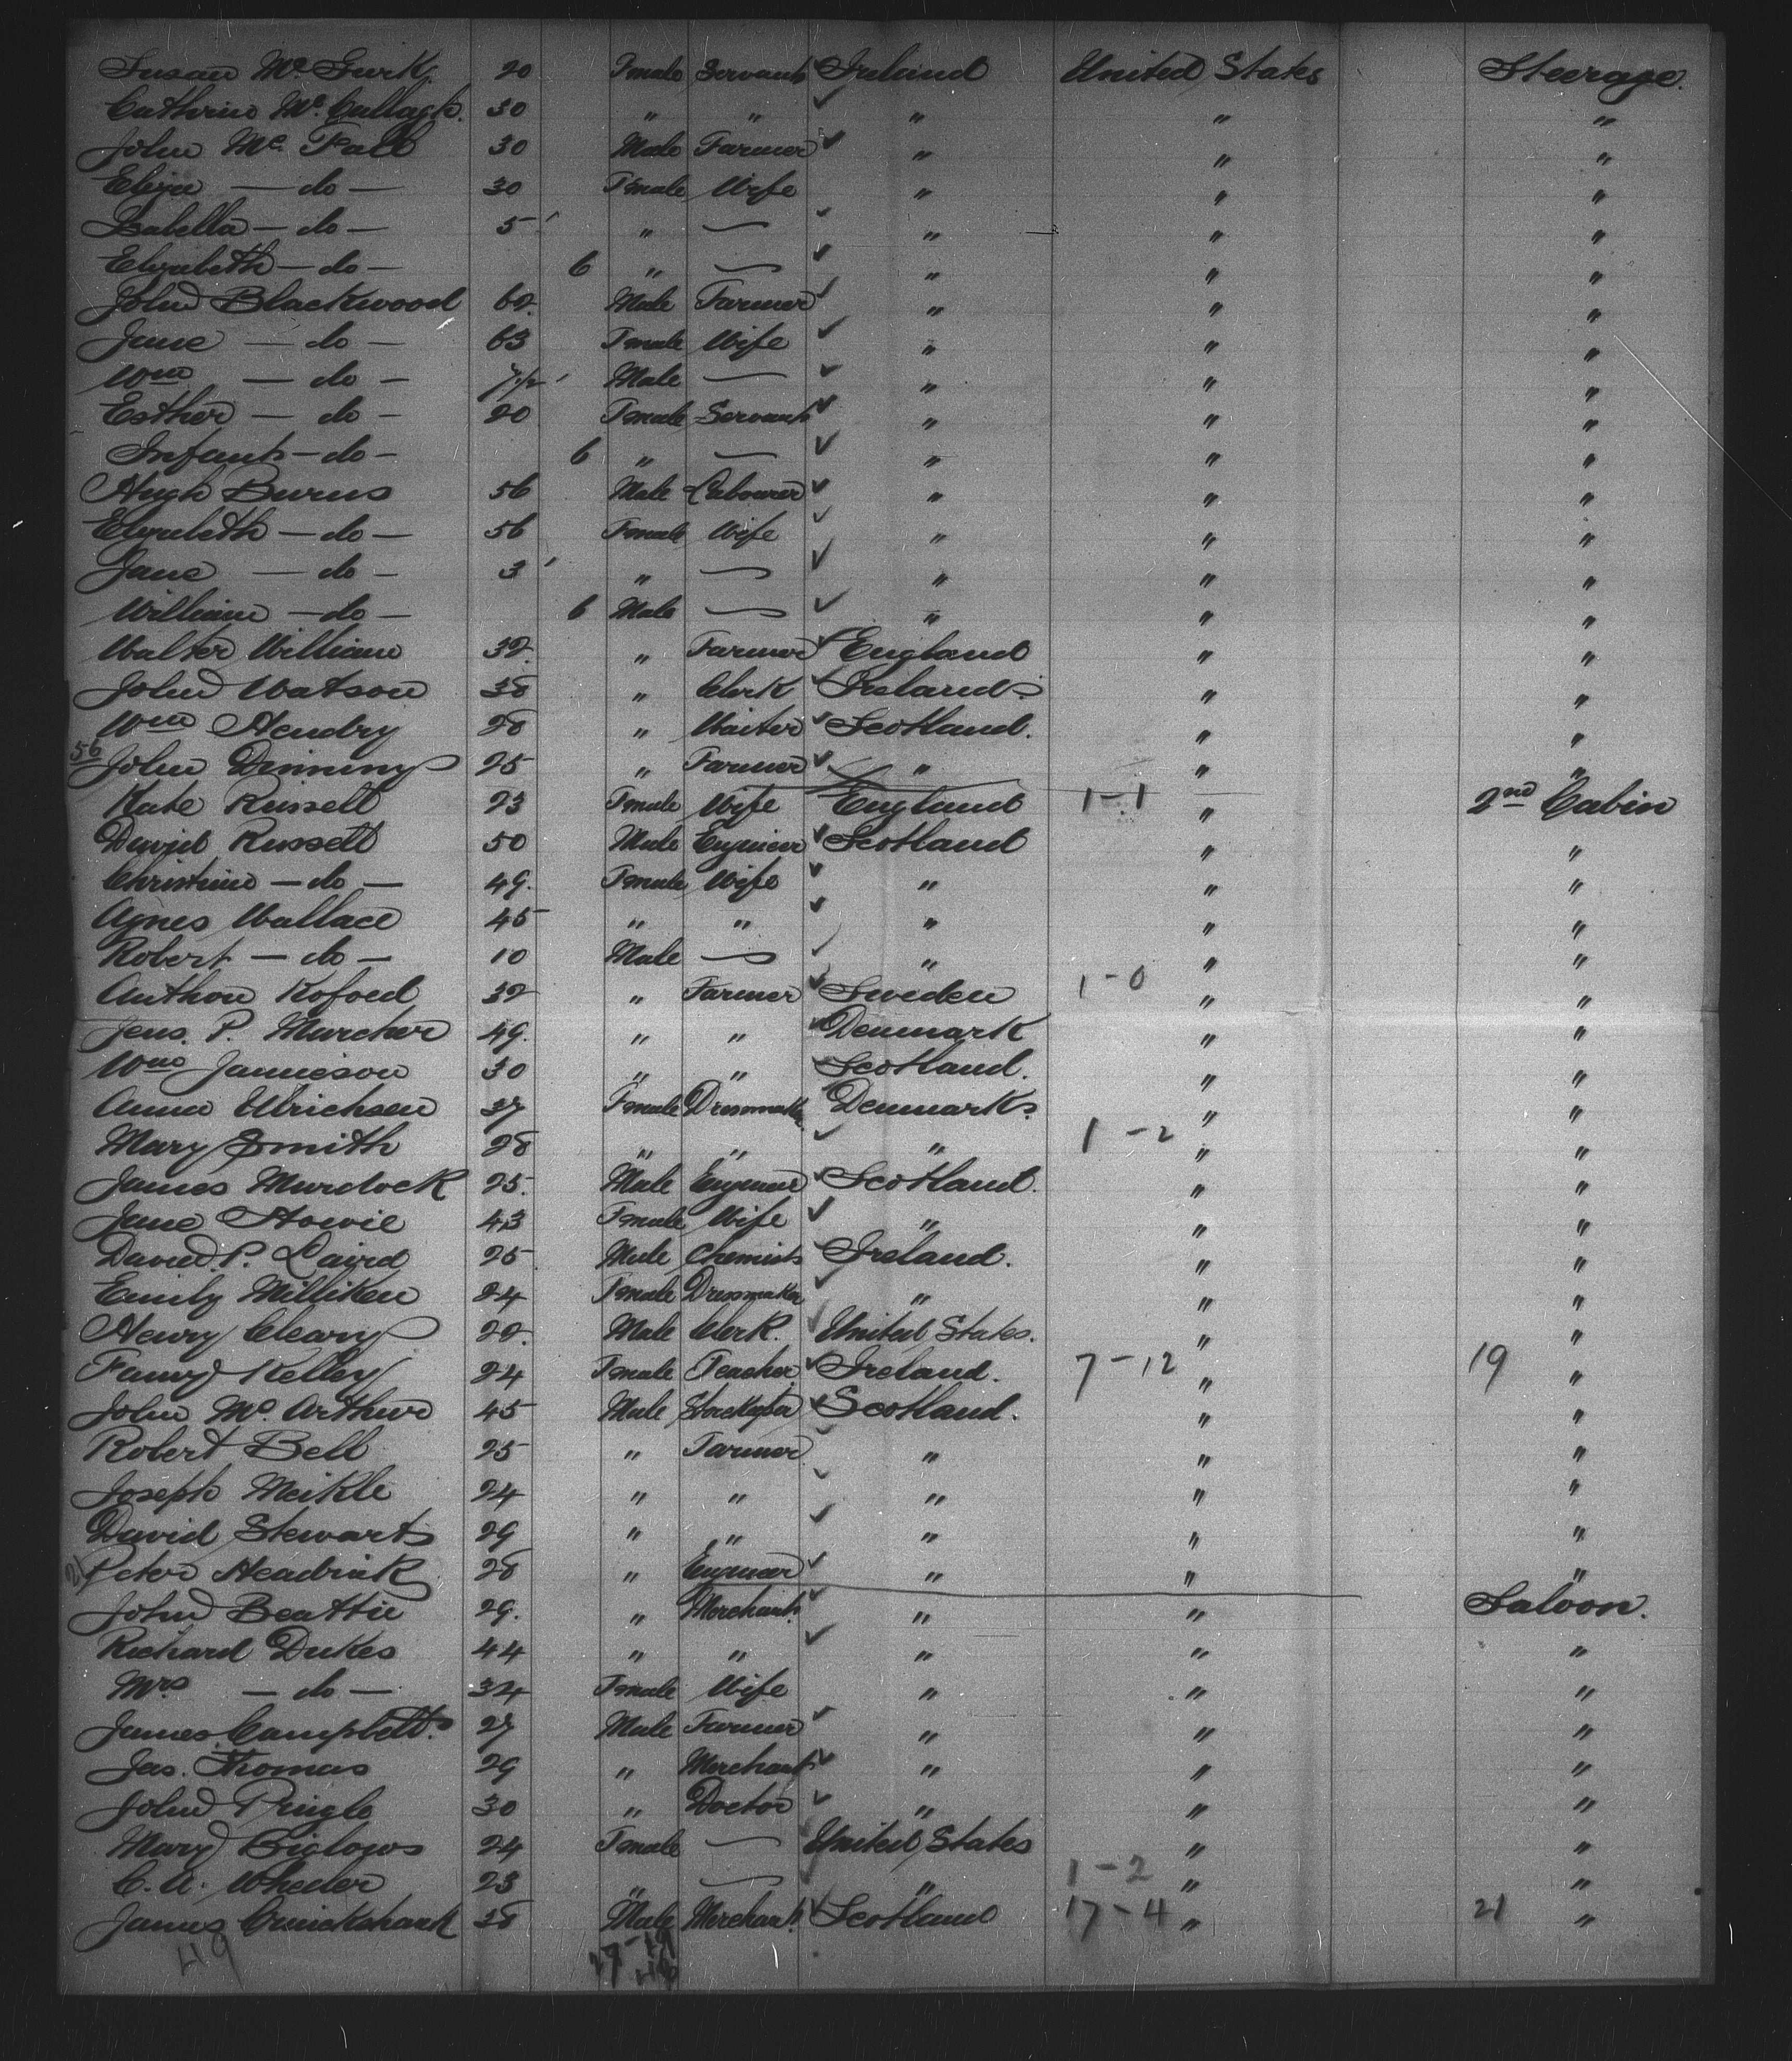 Susan Mc Gurk 20 Fmale Servant Ireland United States Steerage
Catherine Mc Cullagh. 30 " " " " "
John Mc Fall 30 Male Farmer " " "
Eliza — do — 30 Fmale Wife " " "
Isabella — do — 5 " — " " "
Elizabeth — do — 6 " — " " "
John Blackwood 62. Male Farmer " " "
Jane — do — 63 Fmale Wife " " "
Wm — do — 7 1/2 Male — " " "
Esther — do — 20 Fmale Servant " " "
Infant — do — 6 " — " " "
Hugh Burns 56 Male Labourer " " "
Elizabeth — do — 56 Fmale Wife " " "
Jane — do — 3 " — " " "
William — do — 6 Male — " " "
Walter William 32. " Farmer England " "
John Watson 38 " Clerk Ireland " "
Wm Hendry 28 " Waiter Scotland. " "
56 John Dinning 25 " Farmer " " "
Kate Russell 23 Fmale Wife England 1-1 " 2nd Cabin
David Russell 50 Male Engineer Scotland " "
Christine — do — 49. Fmale Wife " " "
Agnes Wallace 45 " " " " "
Robert — do — 10 Male — " " "
Anthon Kofoed 32 " Farmer Sweden 1-0 " "
Jens. P. Murcher 49. " " Denmark " "
Wm Jamieson 30 " " Scotland. " "
Anna Ulrichsen 37 Fmale Dressmaker Denmark. " "
Mary Smith 28 " " " 1-2 " "
James Murdock 25. Male Engineer Scotland. " "
Jane Howie 43 Fmale Wife " " "
David. P. Laird 25 Male Chemist Ireland. " "
Emily Milliken 24 Fmale Dressmaker " " "
Henry Cleary 22. Male Clerk. United States. " "
Fanny Kelley 24 Fmale Teacher Ireland. 7-12 " 19 "
John Mc Arthur 45 Male Storekeeper Scotland. " "
Robert Bell 25 " Farmer " " "
Joseph Meikle 24 " " " " "
David Stewart 29 " " " " "
21 Peter Headrick 28 " Engineer " " "
John Beattie 29. " Merchant " " Saloon.
Richard Dukes 44 " " " " "
Mrs — do — 34 Fmale Wife " " "
James Campbell. 27 Male Farmer " " "
Jas. Thomas 29 " Merchant " " "
John Pringle 30 " Doctor " " "
Mary Biglows 24 Fmale — United States " "
C. A. Wheeler 23 " — " 1-2 " "
James Cruickshank 38 Male Merchant Scotland 17-4 " 21 "
49